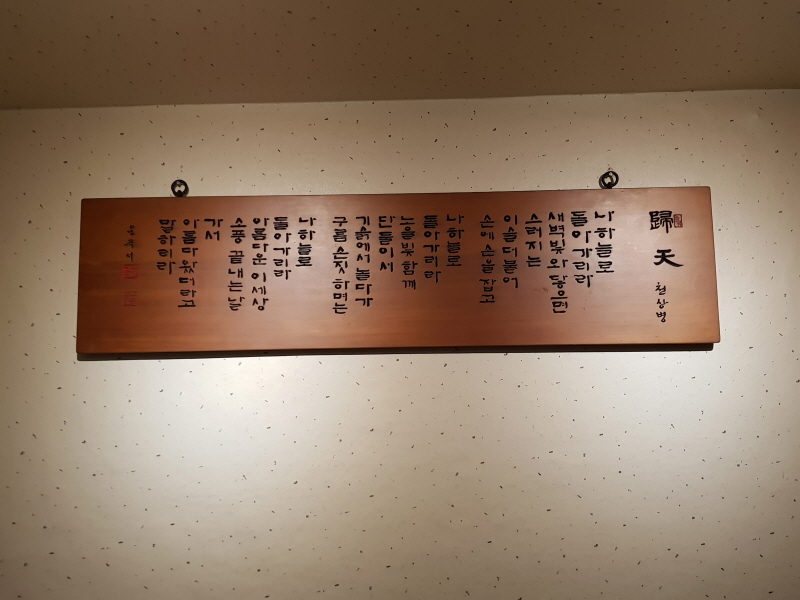 歸天
천상병
나 하늘로
돌아가리라
새벽빛 와 닿으면
스러지는
이슬 더불어
손에 손을 잡고
나 하늘로
돌아가리라
노을빛 함께
단둘이서
기슭에서 놀다가
구름 손짓 하며는
나 하늘로
돌아가리라
아름다운 이 세상
소풍 끝내는 날
가서
아름다웠더라고
말하리라